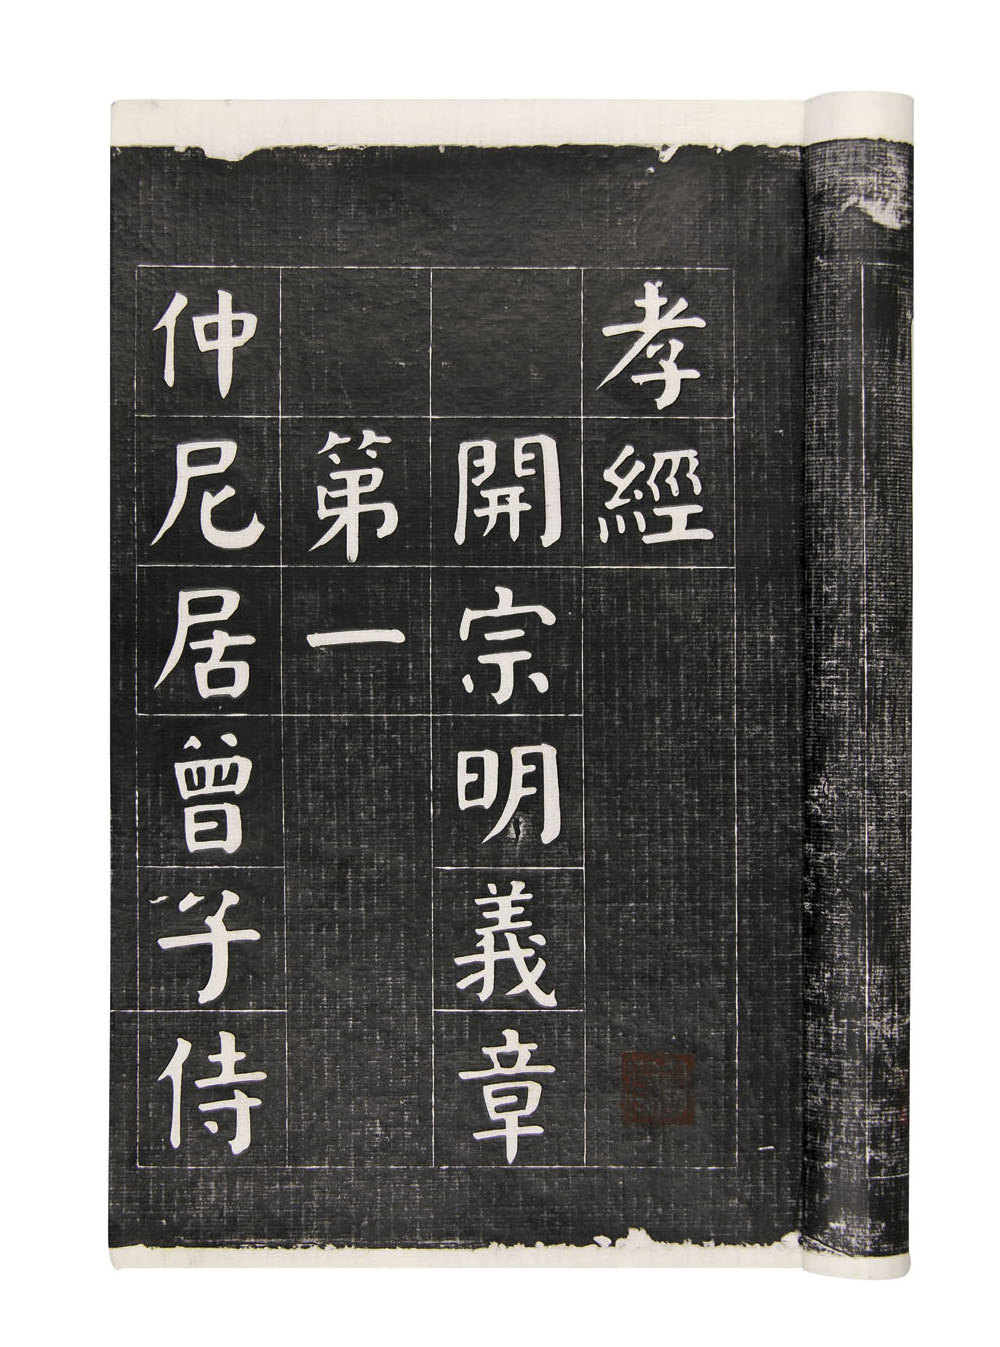 孝經
開宗明義章
第一
仲尼居曾子侍